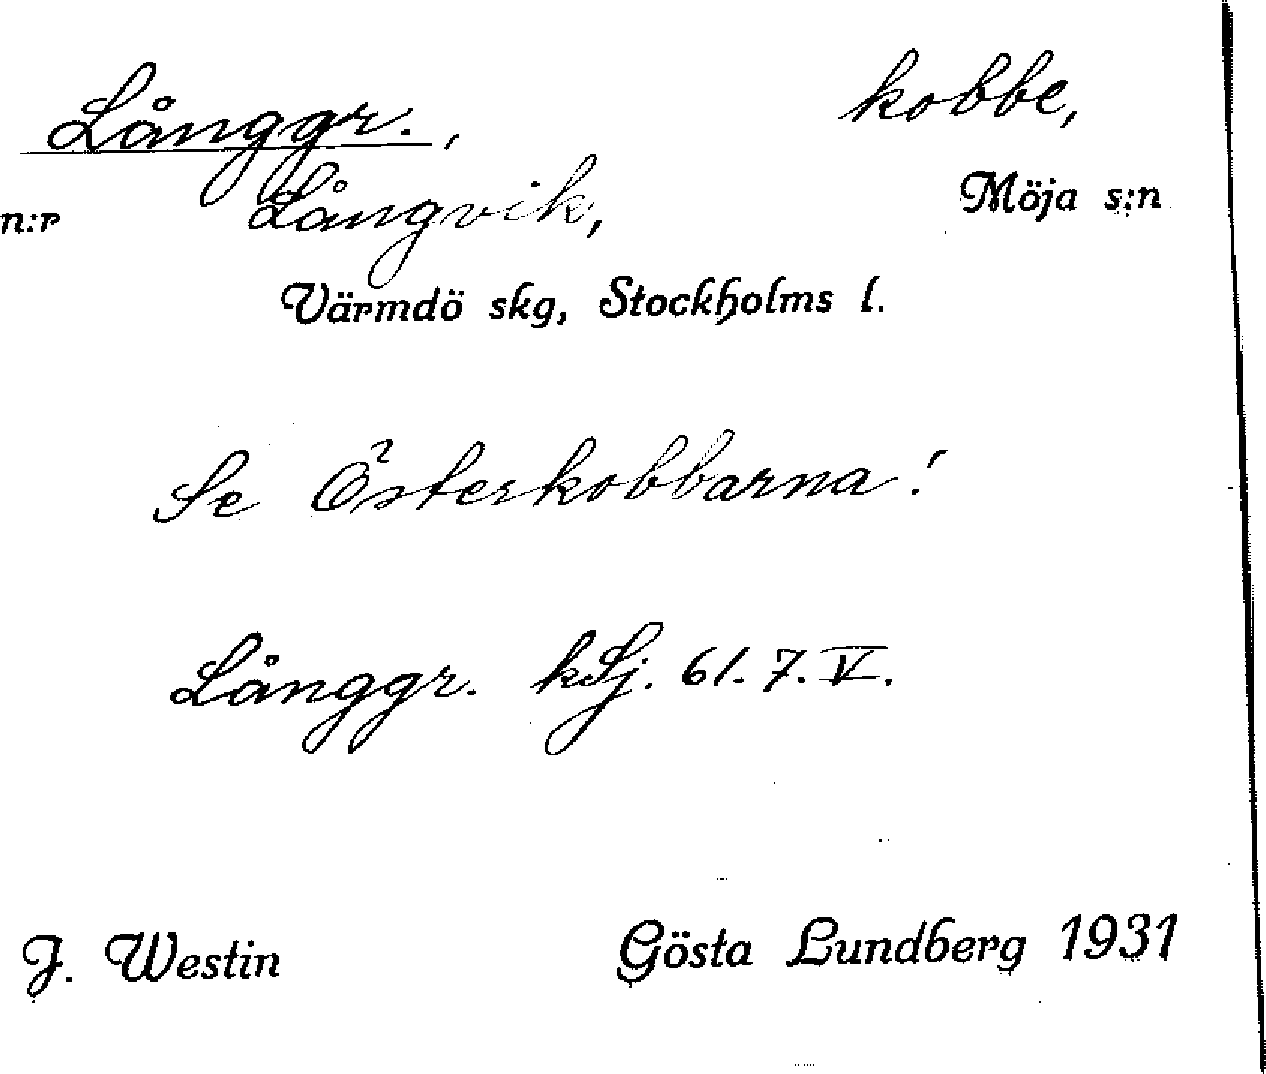 Långgr., kobbe,
n:r Långvik, Möja s:n
Värmdö skg, Stockholms l.
Se Österkobbarna!
Långgr. kSj. 61. 7. V.
J. Westin Gösta Lundberg 1931